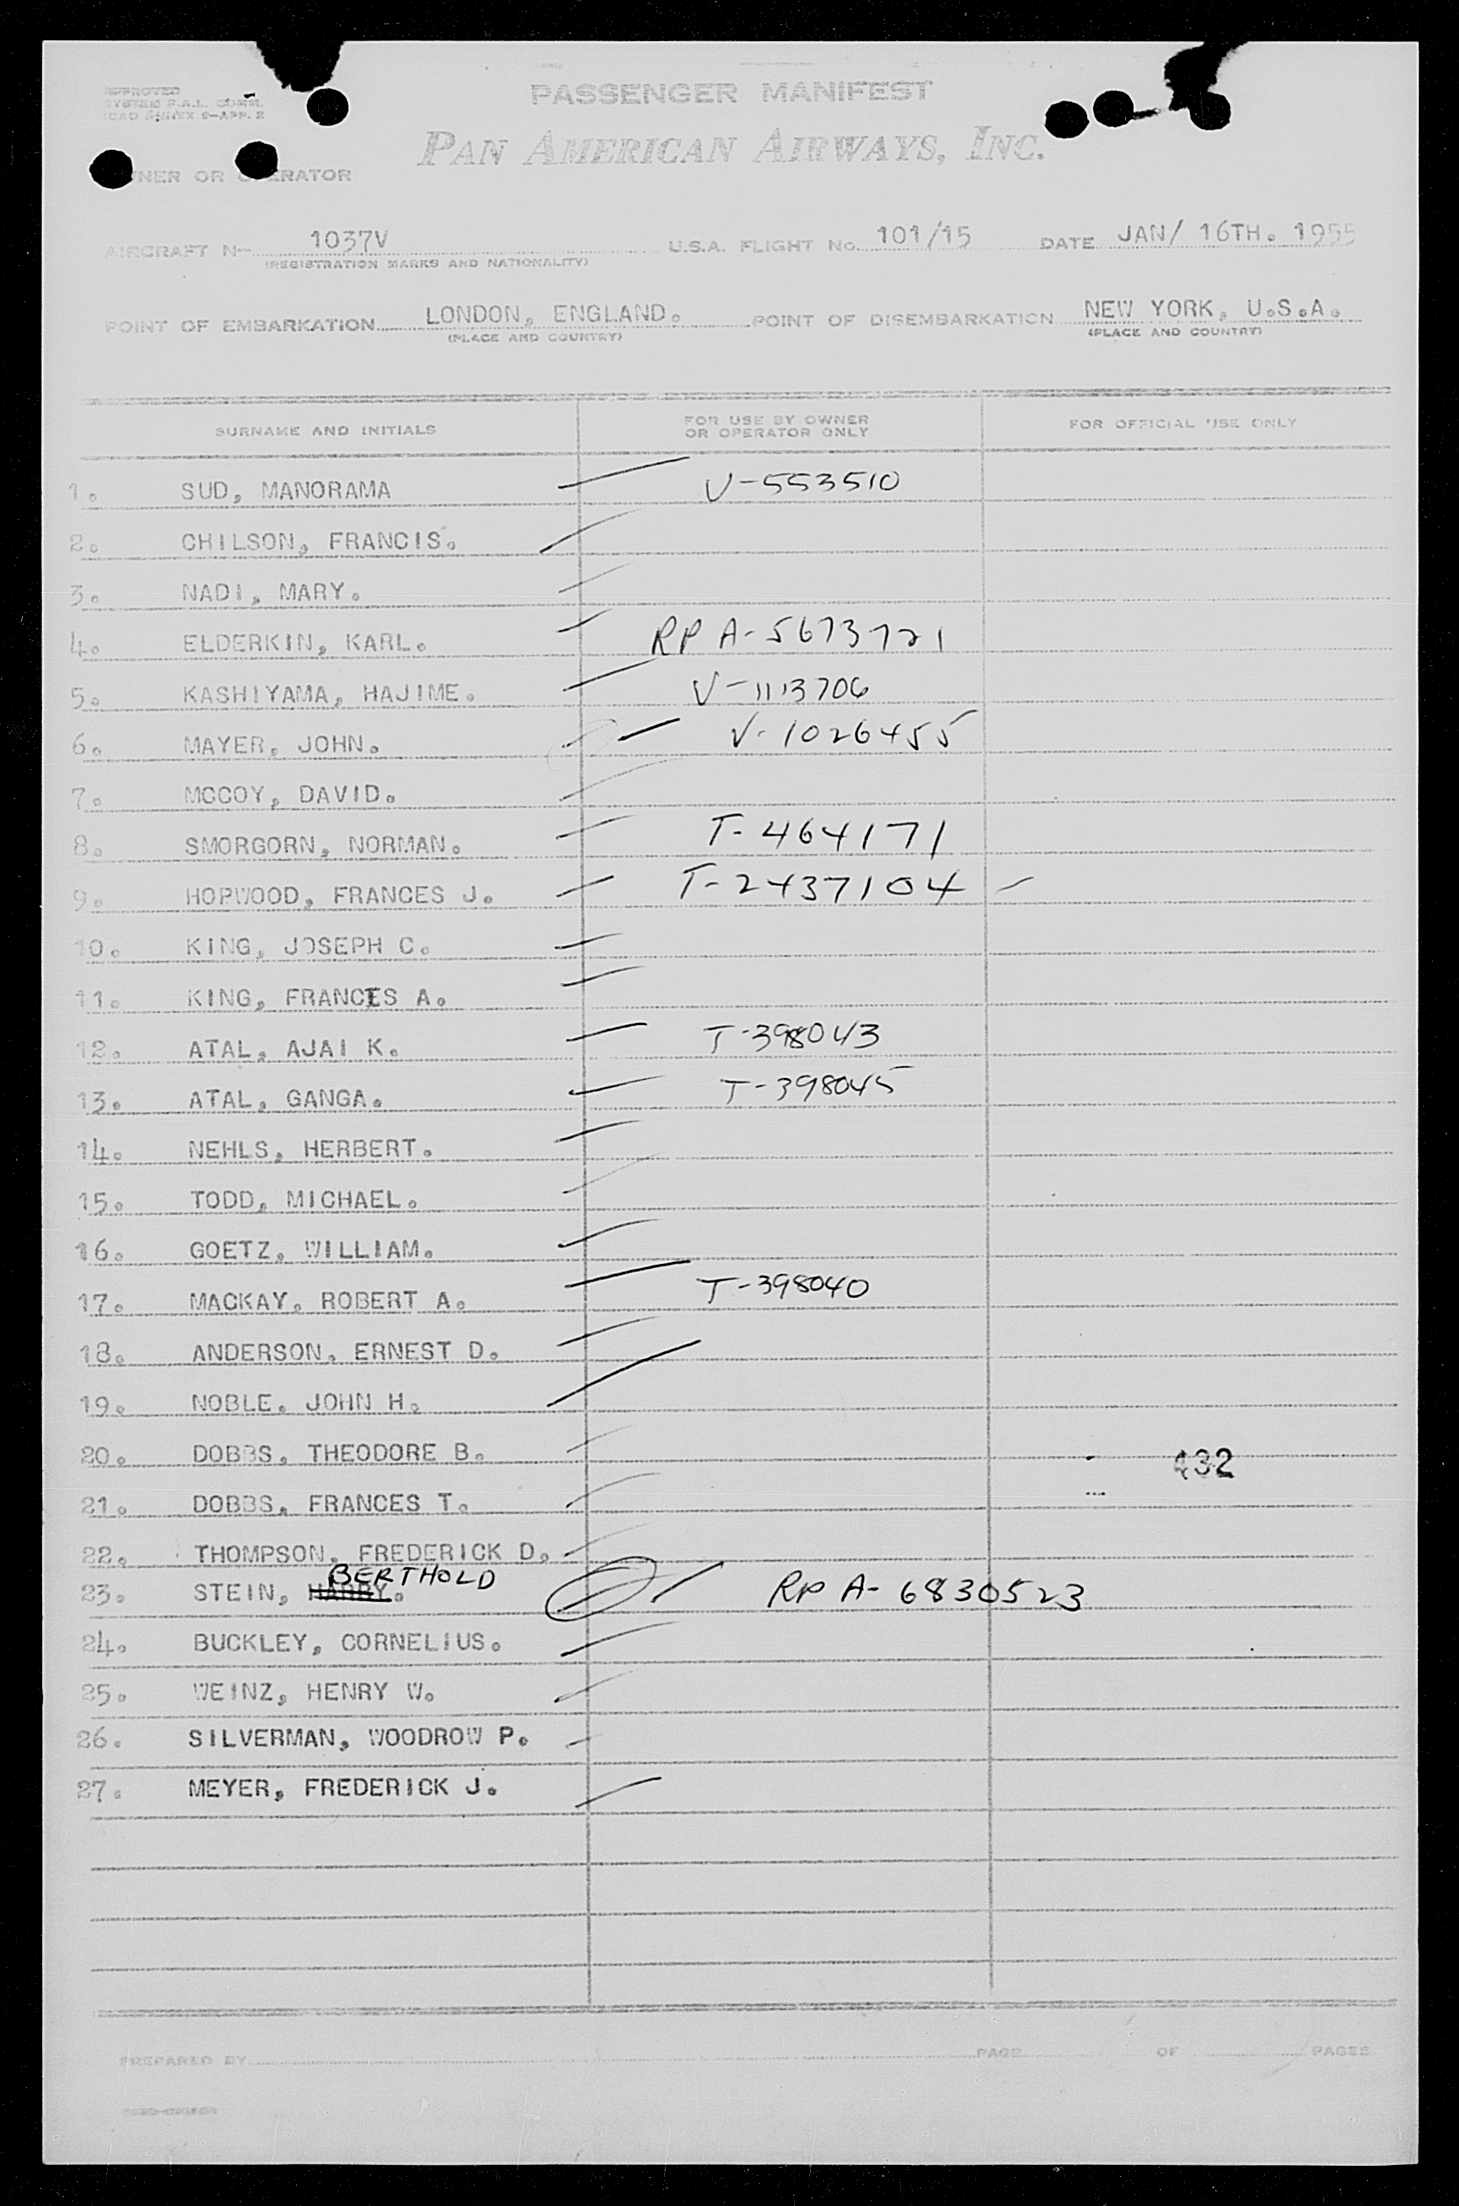 APPROVED
SYSTEM P.A.L. COMM.
ICAO ANNEX 9-APP. 2
PASSENGER MANIFEST
PAN AMERICAN AIRWAYS, INC.
OWNER OR OPERATOR
AIRCRAFT No 1037V U.S.A. FLIGHT No. 101/15 DATE JAN/ 16TH. 1955
(REGISTRATION MARKS AND NATIONALITY)
POINT OF EMBARKATION LONDON, ENGLAND. POINT OF DISEMBARKATION NEW YORK, U.S.A.
(PLACE AND COUNTRY) (PLACE AND COUNTRY)
SURNAME AND INITIALS FOR USE BY OWNER OR OPERATOR ONLY FOR OFFICIAL USE ONLY
1. SUD, MANORAMA V-553510
2. CHILSON, FRANCIS.
3. NADI, MARY.
4. ELDERKIN, KARL. RP A-5673721
5. KASHIYAMA, HAJIME. V-1113706
6. MAYER, JOHN. V-1026455
7. MCCOY, DAVID.
8. SMORGORN, NORMAN. T-464171
9. HOPWOOD, FRANCES J. T-2437104
10. KING, JOSEPH C.
11. KING, FRANCIS A.
12. ATAL, AJAI K. T-398043
13. ATAL, GANGA. T-398045
14. NEHLS, HERBERT.
15. TODD, MICHAEL.
16. GOETZ, WILLIAM.
17. MACKAY, ROBERT A. T-398040
18. ANDERSON, ERNEST D.
19. NOBLE, JOHN H.
20. DOBBS, THEODORE B. 432
21. DOBBS, FRANCES T.
22. THOMPSON, FREDERICK D.
BERTHOLD
23. STEIN, HARRY. RP A-6830523
24. BUCKLEY, CORNELIUS.
25. WEINZ, HENRY W.
26. SILVERMAN, WOODROW P.
27. MEYER, FREDERICK J.
PREPARED BY PAGE OF PAGES